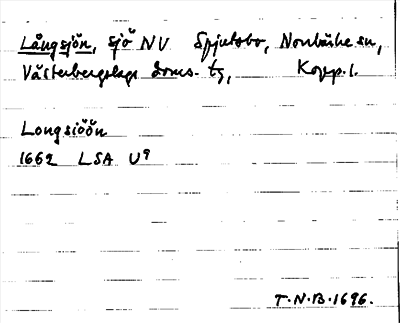 Långsjön, sjö NV Spjutsbo, Norrbärke sn,
Västerbergslags doms. tg, Kopp. l.
Longsiöön
1662 LSA U9
T.N.B. 1696.